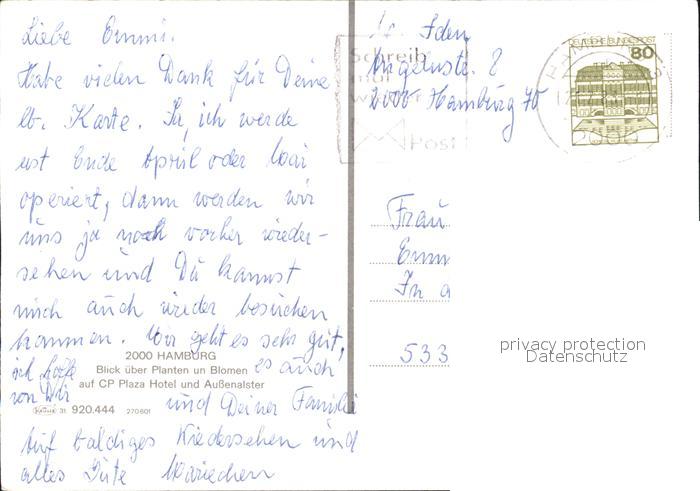 Liebe Emmi.
Habe vielen Dank für Deine
lb. Karte. Ja, ich werde
erst Ende April oder Mai
operiert, dann werden wir
uns ja noch vorher wieder-
sehen und Du kannst
mich auch wieder besuchen
kommen. Wir geht es sehr gut,
ich hoffe es auch
von Dir und Deiner Familie
Auf baldiges Wiedersehen und
alles Gute Mariechen
2000 HAMBURG
Blick über Planten un Blomen
auf CP Plaza Hotel und Außenalster
31 920.444 270601
Iden
8
2000 Hamburg 70
Schreib
mal
wieder
Post
DEUTSCHE BUNDESPOST
80
Frau
Emm
In
533
privacy protection
Datenschutz